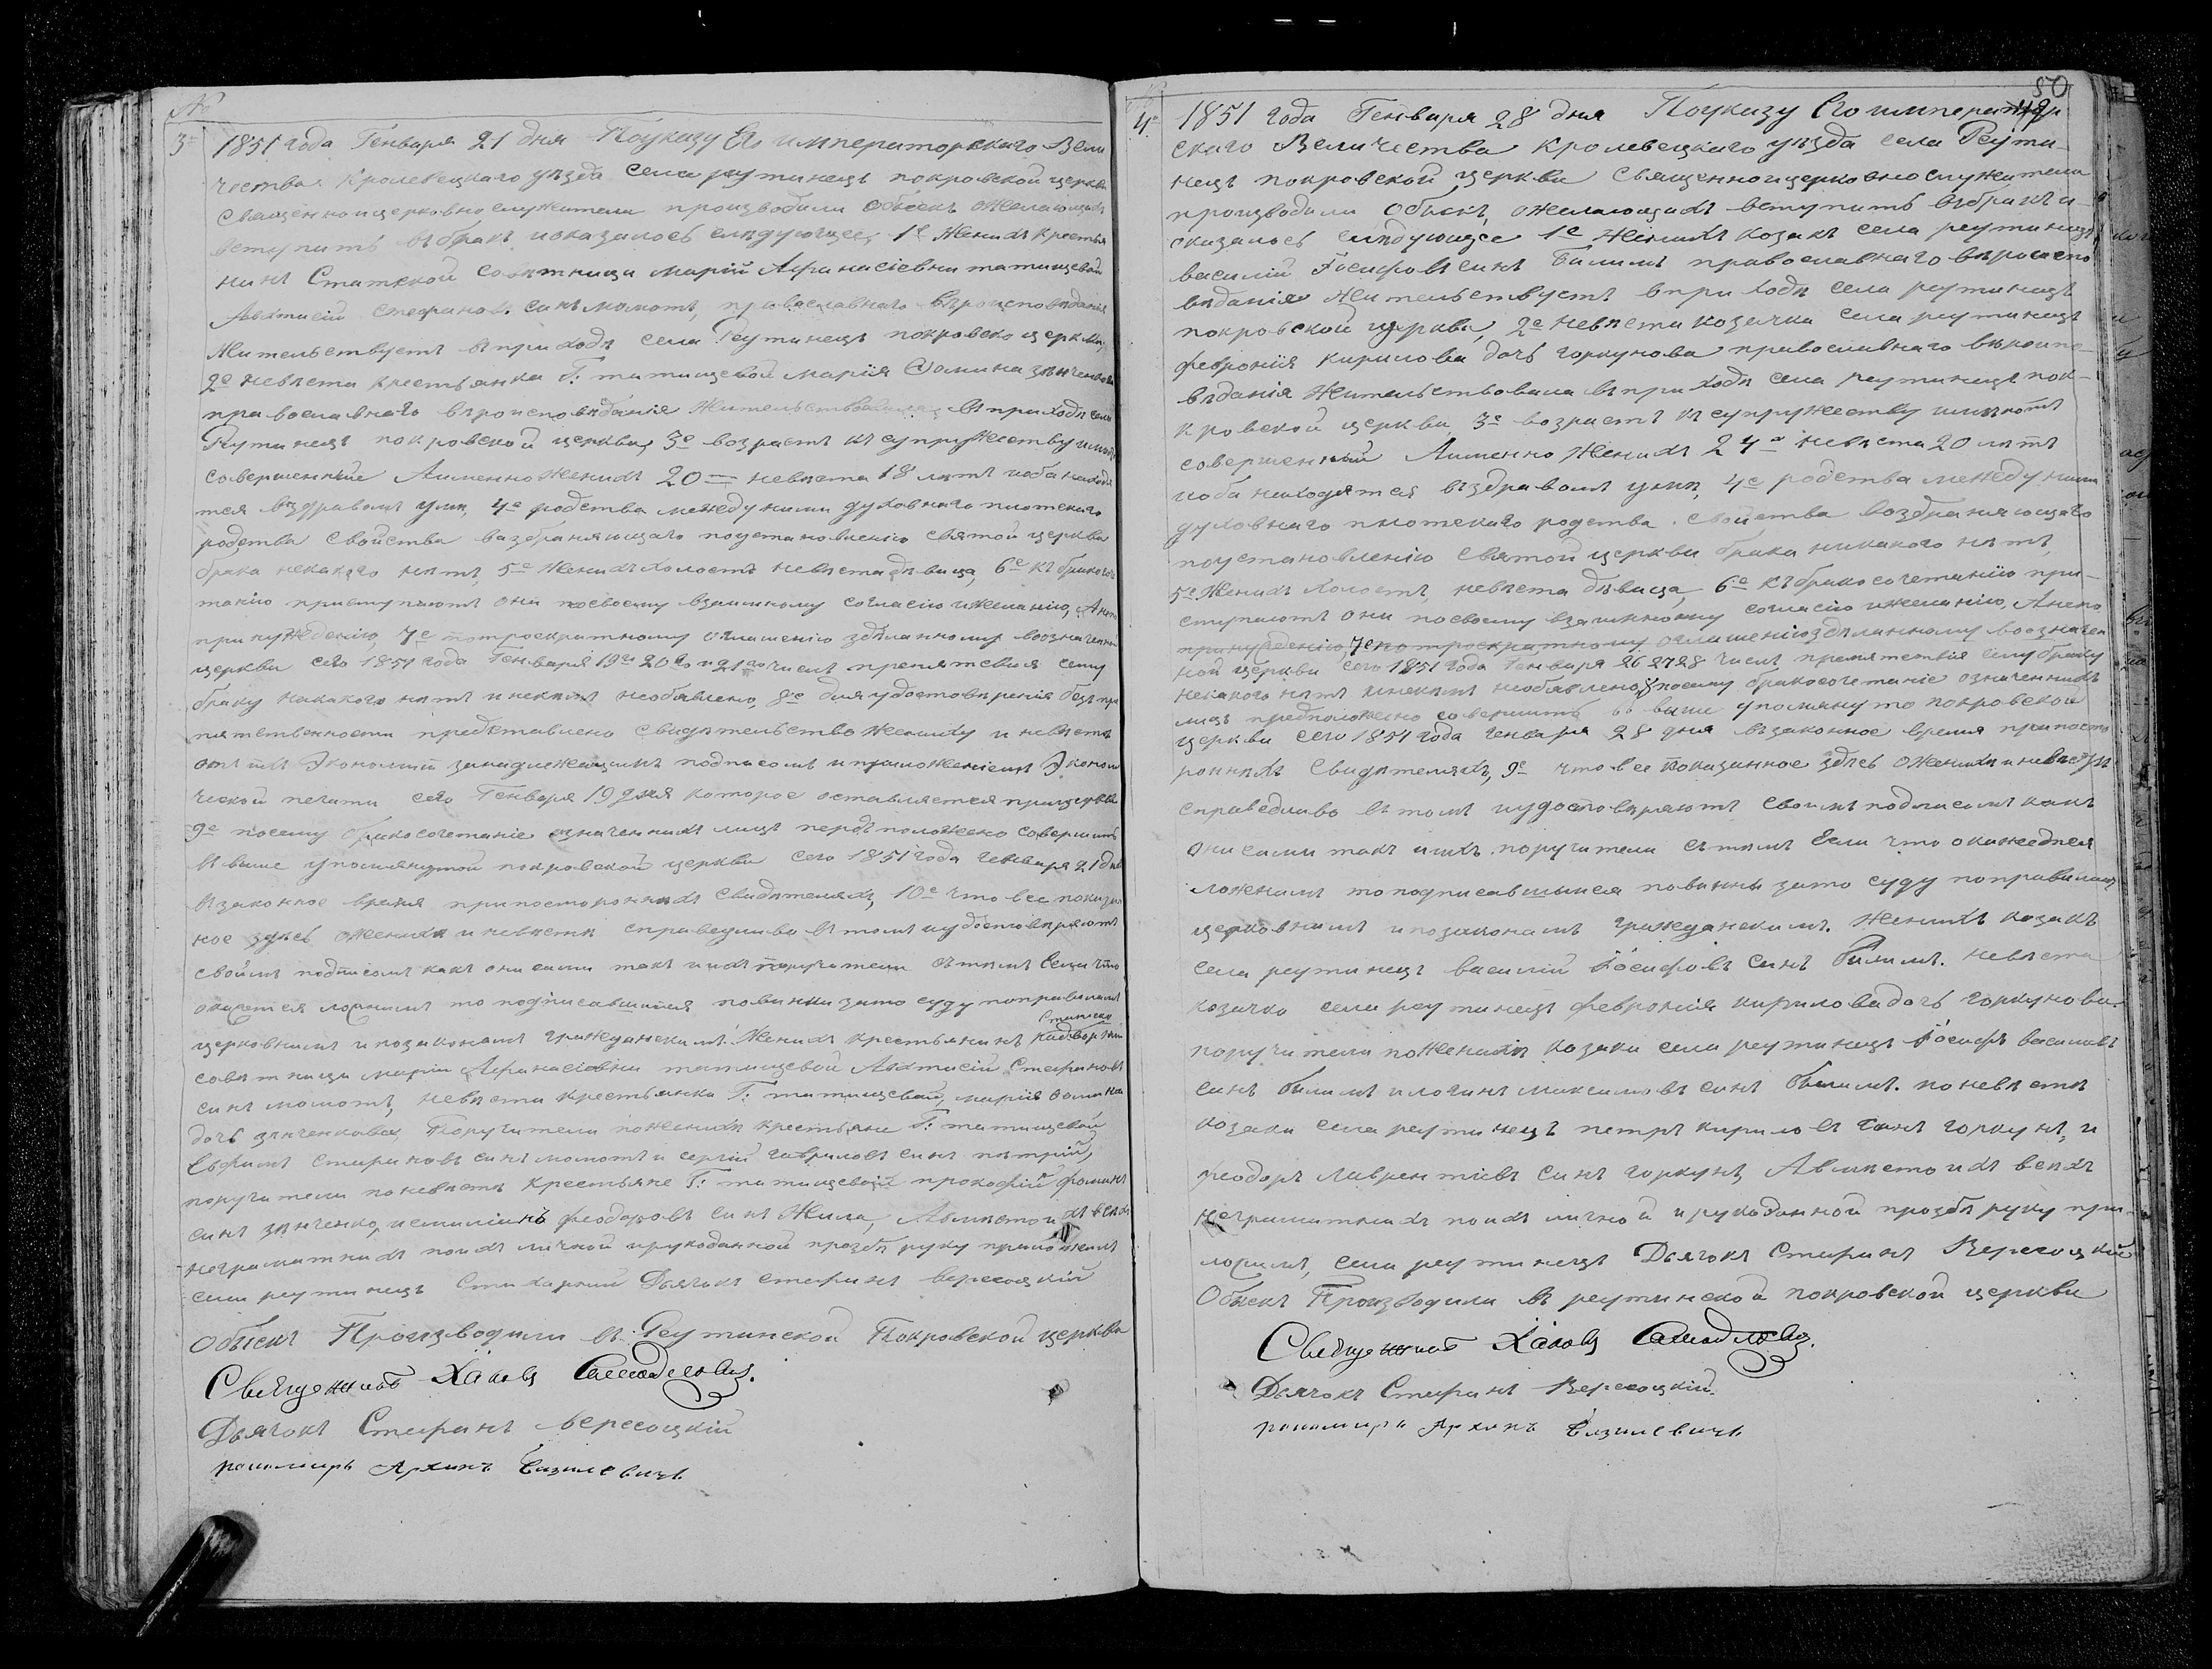 №
3е 1851 года Генваря 21 дня Поуказу Его императорскаго Вели
чества Кролевецкаго уѣзда села реутинецъ покровской церкви
Священноицерковно служители производили Обыскъ ожелающихъ
вступить въбракъ иоказалось слѣдующее, 1е Женихъ крестья
нинъ Статской Совѣтници Маріи Афанасіевни татищевой
Авктисій стефановъ синъ момотъ, православнаго вѣроисповѣданія
Жительствуетъ вприходѣ села Реутинецъ покровско церкви,
2е невѣста крестьянка Г: татищевой марія Фомина зѣнченкова
православнаго вѣроисповѣданія Жительствовавшая въприходѣ села
Реутинецъ покровской церкви, 3е возрастъ къ супружеству имеютъ
совершенный Аименно Женихъ 20 невѣста 18 лѣтъ иоба находя
тся вздравомъ умѣ, 4е родства между ними духовнаго плотскаго
родства свойства возбраняющаго поустановленію святой церкви
брака некакого нѣтъ, 5е Женихъ холостъ невѣста дѣвица, 6е къ бракосоче
танію приступаютъ они посвоему взаимному согласію ижеланію, Анепо
принуждению, 7е потроекратному оглашенію здѣланному воозначенной
церкви сего 1851 года Генваря 19го 20го и 21го числъ препятствія сему
браку никакого нѣтъ инекимъ необявлено, 8е для удостовѣренія безпре
пятственности представлено свидѣтельство жениху и невѣстѣ
отъ ихъ Экономіи занадлежащимъ подписомъ и приложеніемъ Экономи
ческой печати сего Генваря 19 дня которое оставляется прицеркви
9е посему бракосочетаніе означеннихъ лицъ передположено совершить
въ више упомянутой покровской церкви сего 1851 года Генваря 21 дня
взаконное время припостороннихъ свидѣтеляхъ, 10е что все показан
ное здѣсь оженихѣ и невѣстѣ справедливо втомъ иудостовѣряютъ
своимъ подписомъ какъ они сами такъ иихъ поручители стѣмъ Если что
окажется ложнимъ то подписавшіися повинни зато суду поправиламъ
церковнимъ и позаконамъ гражданскимъ. Женихъ крестьянинъ Статской
совѣтници маріи Афанасіевни татищевой Авктисій Стефановъ
синъ момотъ, невѣста крестьянка Г: татищевой, марія Фомина
дочь зѣнченкова, Поручители поженихѣ крестьяне Г: татищевой
Евфимъ стефановъ синъ момотъ и сергій гавриловъ синъ
поручители поневѣстѣ крестьяне Г: татищевой прокофій фоминъ
синъ зѣнченко, феодоровъ синъ Жила, Авмѣсто ихъ всѣхъ
неграматнихъ поихъ личной ирукоданной прозбѣ руку приложилъ
села реутинецъ Стихарний Дьячокъ стефанъ вересоцкій
Обыскъ Производили въ Реутинской Покровской церкви
Священникъ Іаковъ
Дьячокъ Стефанъ вересоцкій
пономарь Архипъ
50
4е 1851 года Генваря 28 дня Поуказу Его император
скаго Величества Кролевецкаго уѣзда села Реути-
нецъ покровской церкви Священноицерковнослужители
производили Обыскъ, ожелающихъ вступить въбракъ и
оказалось слѣдующее 1е Женихъ козакъ села реутинецъ
василій Іосифовъ синъ Билимъ православнаго вѣроиспо
вѣданія Жительствуетъ вприходѣ села реутинецъ
покровской церкви, 2е невѣста козачка села реутинецъ
феєронія кирилова дочь горкунова православнаго вѣроиспо-
вѣданія Жительствовала въприходѣ села реутинецъ пок-
кровской церкви, 3е возрастъ къ супружеству имѣютъ
совершенный Аименно Женихъ 24 невѣста 20 лѣтъ
иоба находятся въздравомъ умѣ, 4е родства между ними
духовнаго плотскаго родства. свойства возбраняющаго
поустановленію святой церкви брака никакого нѣтъ,
5е Женихъ холостъ, невѣста дѣвица, 6е къбракосочетанію при-
ступаютъ они посвоему взаимному согласію ижеланію, Анепо
принужденію, 7е потроекратному оглашенію здѣланному воозначен
ной церкви сего 1851 года Генваря 26 27 28 числъ, препятствія сему браку
некакого нѣтъ инекимъ необявлено, 8 посему бракосочетаніе означеннихъ
лицъ предположено совершить въ више упомянуто покровской
церкви сего 1851 года генваря 28 дня взаконное время припосто
роннихъ свидѣтеляхъ, 9е что все показанное здѣсь оженихѣ и невѣстѣ
справедливо втомъ иудостовѣряютъ своимъ подписомъ какъ
они сами такъ иихъ поручители стѣмъ Если что окажедтся
ложнимъ то подписавшіися повинни зато суду поправиламъ
церковнимъ и позаконамъ гражданскимъ. Женихъ козакъ
села реутинецъ василій Іосифовъ синъ Билимъ. невѣста
козачка села реутинецъ феврония кирилова дочь горкунова.
поручители поженихѣ козаки села реутинецъ Іосифъ василевъ
синъ билимъ илогинъ максимовъ синъ билимъ. поневѣстѣ
козаки села реутинецъ петръ кириловъ синъ горкунъ, и
феодоръ лаврентіевъ синъ горкунъ, Авмѣсто ихъ всѣхъ
неграматнихъ поихъ личной ирукоданной прозбѣ руку при-
ложилъ, села реутинецъ Дьячокъ Стефанъ Вересоцкій
Обыскъ Производили въ реутинской покровской церкви
Священникъ Іаковъ
Дьячокъ Стефанъ Вересоцкій.
пономарь Архипъ